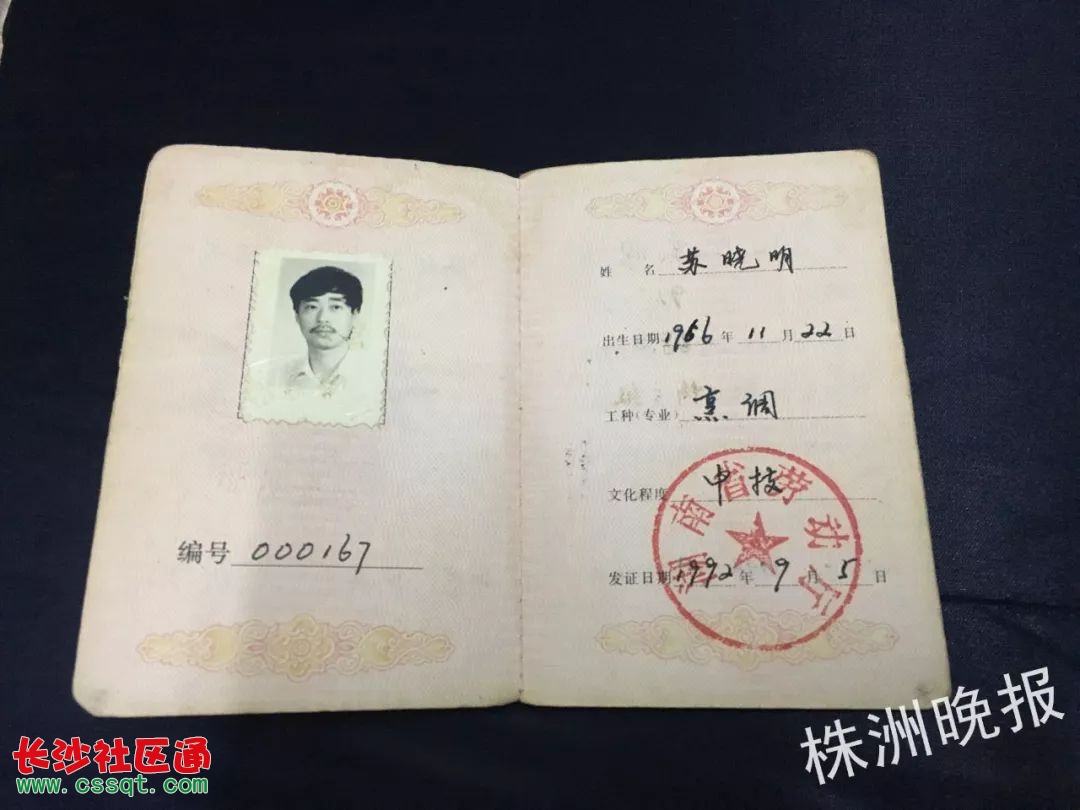 编号 000167
姓 名 苏晓明
出生日期 1966 年 11 月 22 日
工种(专业) 烹调
文化程度 中技
发证日期 1992 年 9 月 5 日
湖南省劳动厅
长沙社区通
www.cssqt.com
株洲晚报